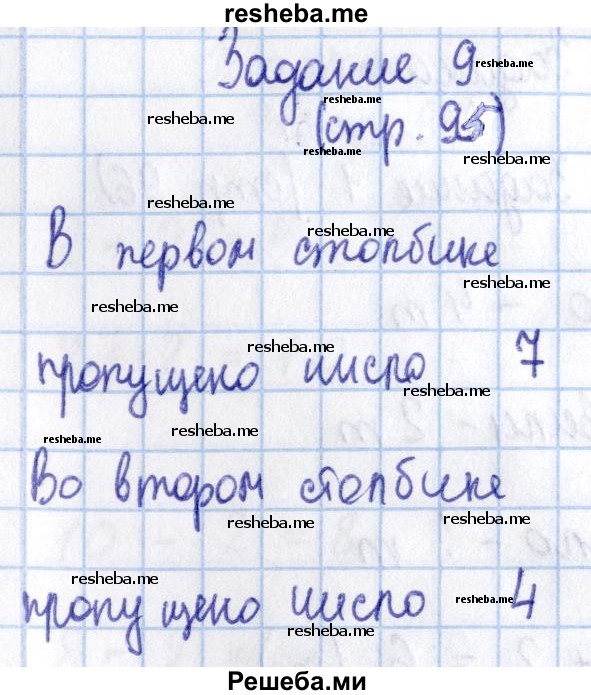 resheba.me
Задание 9 resheba.me
resheba.me
resheba.me
(стр. 95)
resheba.me
resheba.me
resheba.me
resheba.me
В первом столбике
resheba.me
resheba.me
пропущено число 7
resheba.me
resheba.me
resheba.me
Во втором столбике
resheba.me
resheba.me
resheba.me
пропущено число resheba.me 4
resheba.me
Решеба.ми